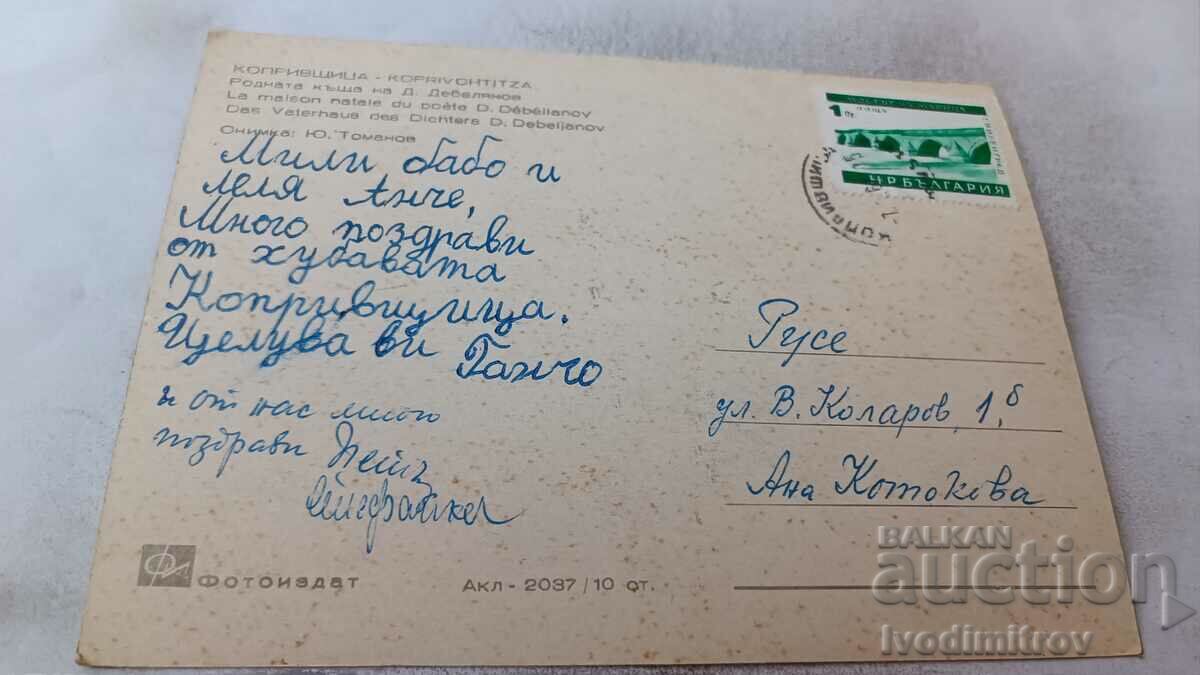 КОПРИВЩИЦА - KOPRIVCHTITZA
Родната къща на Д. Дебелянов
La maison natale du poète D. Débélianov
Das Vaterhaus des Dichters D. Debeljanov
Снимка: Ю. Томанов
Мили бабо и
леля Анче,
Много поздрави
от хубавата
Копривщица.
Целува ви Ганчо
и от нас много
поздрави
1 ст.
НР БЪЛГАРИЯ
Русе
ул. В. Коларов, 1, б
Ана Котокова
Фотоиздат
Акл - 2037 / 10 ст.
BALKAN
auction
Ivodimitrov